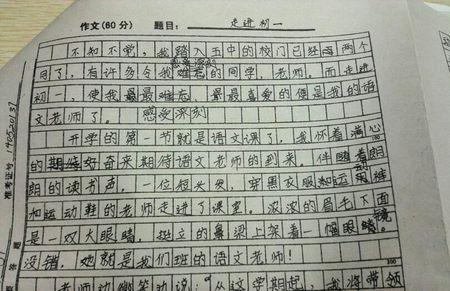 作文(60分) 题目: 走进初一
不知不觉,我踏入五中的校门已经有两个
感受深刻
月了,有许多令我难忘的同学,老师。而走进
初一,使我最最难忘,最最喜爱的便是我的语
文老师了。 感受深刻
开学的第一节就是语文课了。我怀着满心
的期待好奇来期待语文老师的到来。伴随着朗
朗的读书声,一位短头发,穿黑衣服和运动裤
和运动鞋的老师走进了课室。浓浓的眉毛下面
是一双大眼睛,挺立的鼻梁上架着一幅眼镜。
没错,她就是我们班的语文老师!
300
老师幽幽笑动说:"从这学期起,我将带领
准考证号 190520137